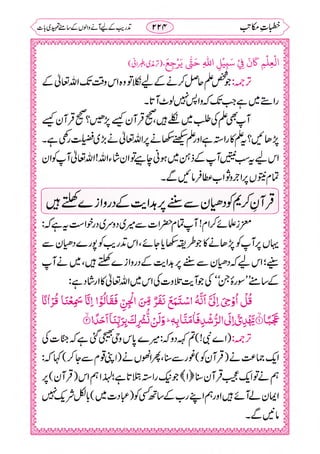 خطباتِ مکاتب ۲۲۴ تدریب کے لیے آنے والوں کے سامنے تمہیدی بات
الْعِلْمِ كَانَ فِيْ سَبِيْلِ اللهِ حَتّٰى يَرْجِعَ.
ترجمہ: جو شخص علم حاصل کرنے کے لیے نکلا وہ اس وقت تک اللہ تعالیٰ کے
راستے میں ہے جب تک وہ واپس نہیں لوٹ آتا۔
ابھی آپ علم کی طلب میں نکلے ہیں، صحیح قرآن کیسے پڑھیں؟ صحیح قرآن کیسے
پڑھائیں؟ یہ علم کا راستہ ہے اور علم سیکھنے سکھانے پر اللہ تعالیٰ نے بڑی فضیلت رکھی ہے۔
اس لیے سب نیتیں آپ کے ذہن میں ہونی چاہیے تو ان شاء اللہ! اللہ تعالیٰ آپ کو ان
تمام نیتوں پر اجر و ثواب عطا فرمائیں گے۔
قرآنِ کریم کو دھیان سے سننے پر ہدایت کے دروازے کھلتے ہیں
معزز علمائے کرام! آپ تمام حضرات سے میری دوسری درخواست یہ ہے کہ:
یہاں پر آپ کو پڑھانے کا جو طریقہ سکھایا جائے، اس تدریب کو پورے دھیان سے
سنیے؛ اس لیے کہ دھیان سے سننے پر ہدایت کے دروازے کھلتے ہیں، میں نے آپ
کے سامنے ”سورۂ جن“ کی آیت تلاوت کی اس میں اللہ تعالیٰ کا ارشاد ہے:
قُلْ اُوْحِيَ اِلَيَّ اَنَّهُ اسْتَمَعَ نَفَرٌ مِّنَ الْجِنِّ فَقَالُوْٓا اِنَّا سَمِعْنَا قُرْاٰنًا
عَجَبًا ۝۱ يَّهْدِيْٓ اِلَى الرُّشْدِ فَاٰمَنَّا بِهٖ ۭ وَلَنْ نُّشْرِكَ بِرَبِّنَآ اَحَدًا ۝۲
ترجمہ: (اے نبی!) تم کہہ دو کہ: میرے پاس وحی بھیجی گئی ہے کہ جنات کی
ایک جماعت نے (قرآن کو) غور سے سنا، پھر انھوں نے (اپنی قوم سے جا کر) کہا کہ:
ہم نے تو ایک عجیب قرآن سنا ﴿۱﴾ جو نیکی کا راستہ بتلاتا ہے؛ لہٰذا ہم اس (قرآن) پر
ایمان لے آئے ہیں اور ہم اپنے رب کے ساتھ کسی کو (عبادت میں) بالکل شریک نہیں
مانیں گے۔